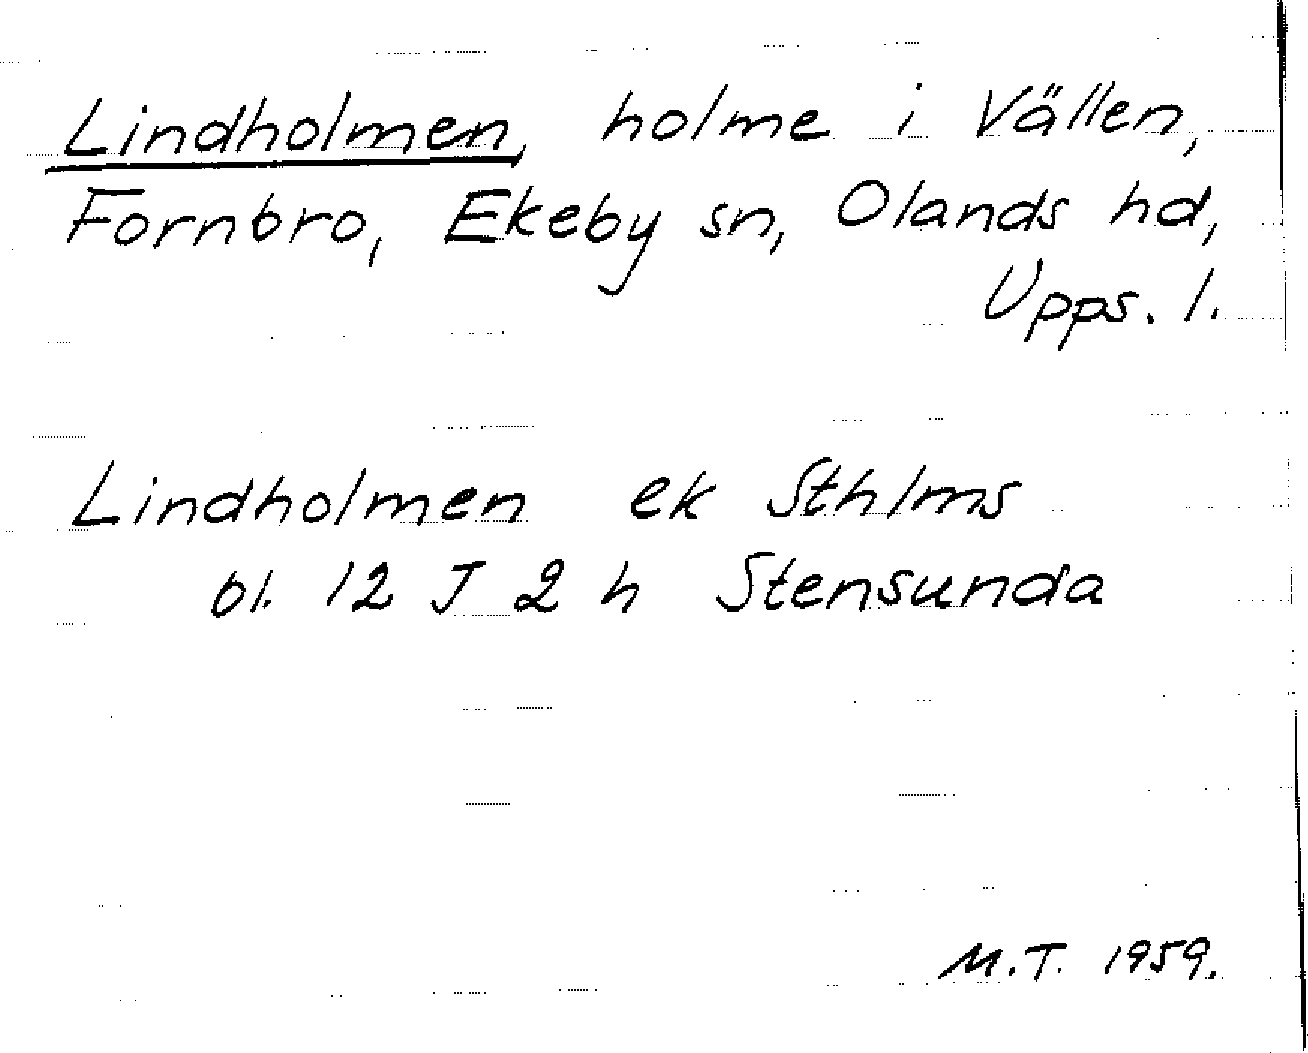 Lindholmen, holme i Vällen,
Fornbro, Ekeby sn, Olands hd,
Upps. l.
Lindholmen ek Sthlms
bl. 12 J 2 h Stensunda
M.T. 1959.